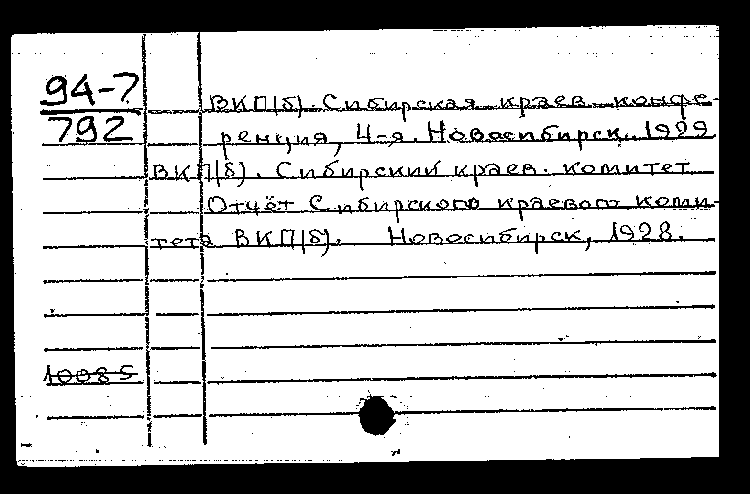 94-7
792
ВКП(б). Сибирская краев. конфе-
ренция, 4-я. Новосибирск. 1929
ВКП(б). Сибирский краев. комитет
Отчёт Сибирского краевого коми-
тета ВКП(б). Новосибирск, 1928.
10085